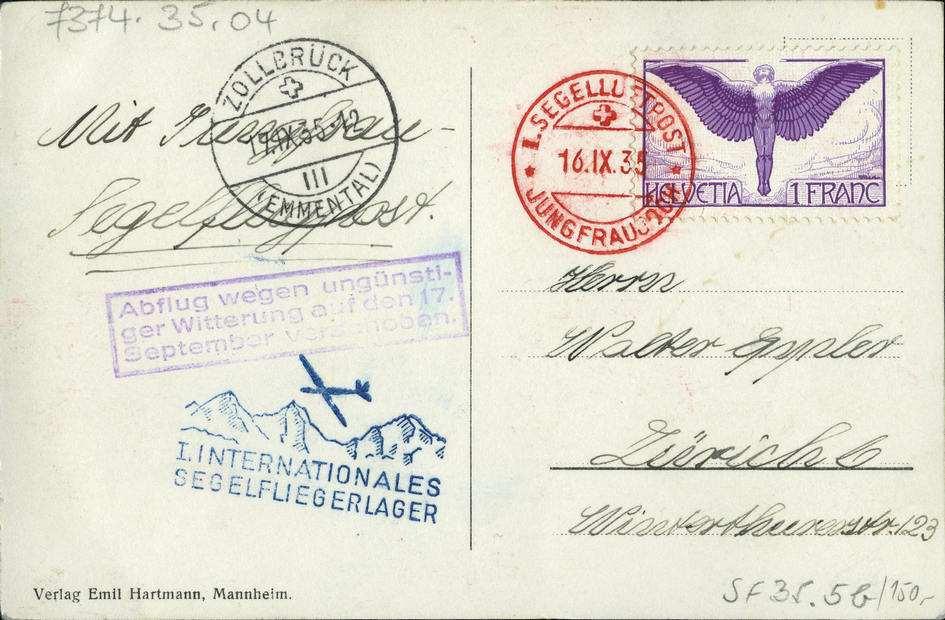 7374. 35.04
ZOLLBRÜCK
19.IX.35-12
III
(EMMENTAL)
Mit Jungfrau-
Segelflugpost.
Abflug wegen ungünsti-
ger Witterung auf den 17.
September verschoben.
I. INTERNATIONALES
SEGELFLIEGERLAGER
Verlag Emil Hartmann, Mannheim.
I. SEGELLUFTPOST
16.IX.35
JUNGFRAUJOCH
HELVETIA 1 FRANC
Herrn
Walter Eppler
Zürich 6
Winterthurerstr. 123
SF 35.5b/150,-